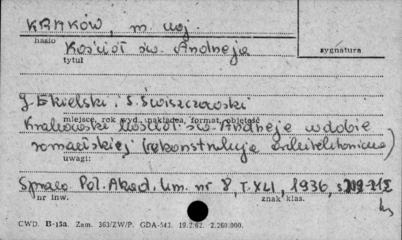 KRAKÓW, m. woj.
hasło
Kościół św. Andrzeja
sygnatura
tytuł
J. Ekielski i S. Świszczowski
miejsce, rok wyd., nakładca, format, objętość
Krakowski kościół św. Andrzeja w dobie
romańskiej (rekonstrukcja architektoniczna)
uwagi:
Spraw. Pol. Akad. Um. nr 8, T. XLI, 1936, s.
nr inw.
znak klas.
CWD. B-13a. Zam. 363/ZW/P. GDA-543. 19.2.62. 2.260.000.